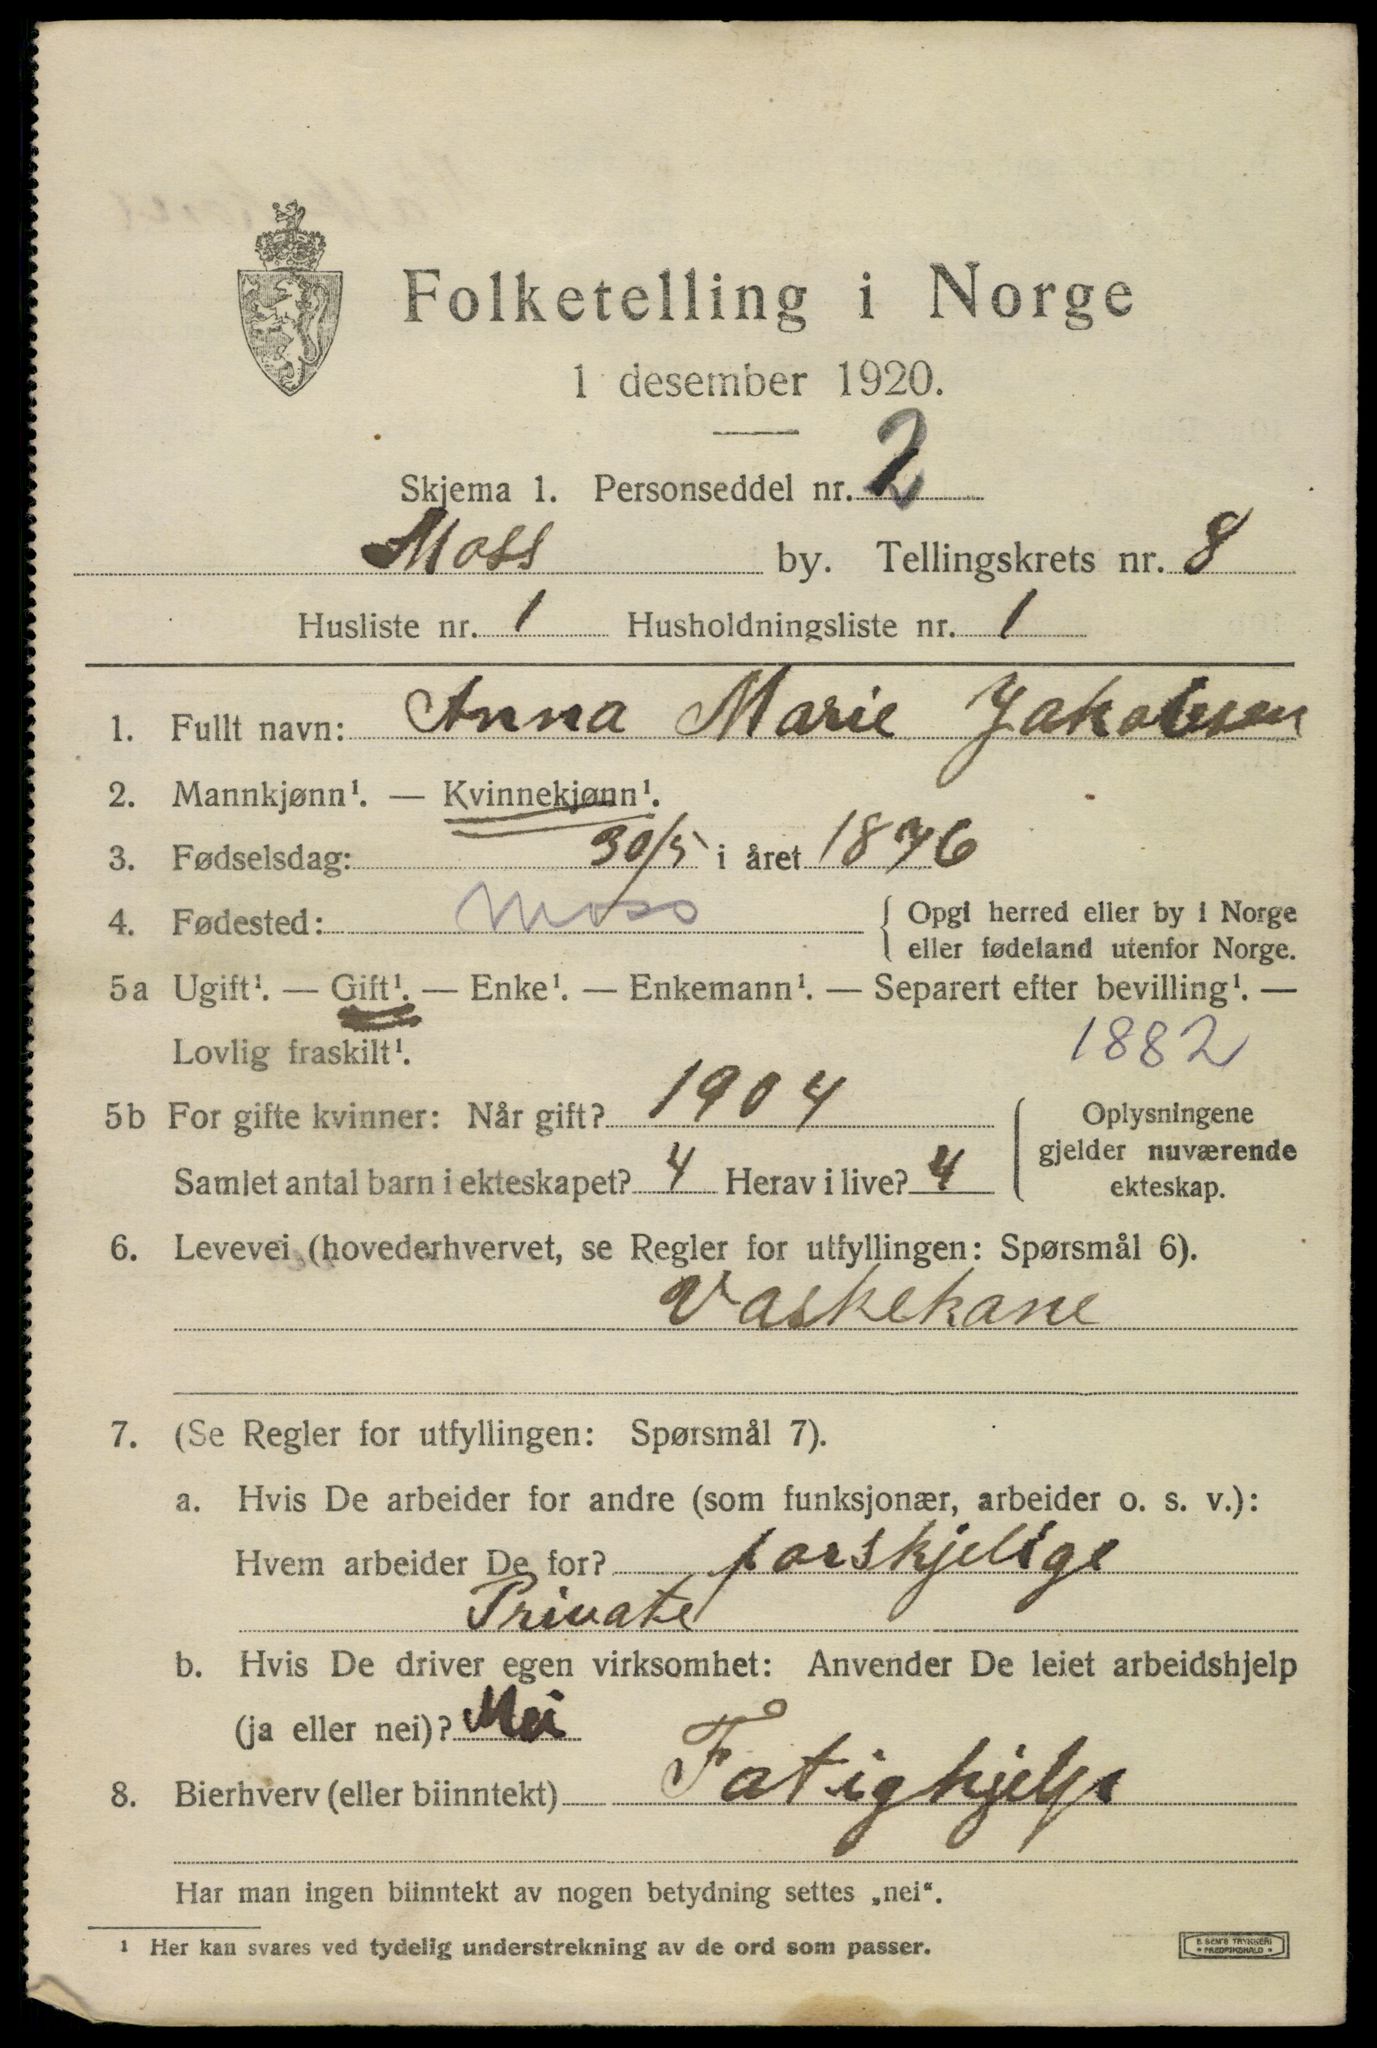 Folketelling i Norge
1 desember 1920.
Skjema 1. Personseddel nr. 2
Moss by. Tellingskrets nr. 8
Husliste nr. 1 Husholdningsliste nr. 1
1. Fullt navn: Anna Marie Jakobsen
2. Mannkjønn¹. — Kvinnekjønn¹.
3. Fødselsdag: 30/5 i året 1876
4. Fødested: Moss { Opgi herred eller by i Norge
eller fødeland utenfor Norge.
5a Ugift¹. — Gift¹. — Enke¹. — Enkemann¹. — Separert efter bevilling¹. —
Lovlig fraskilt¹. 1882
5b For gifte kvinner: Når gift? 1904 { Oplysningene
gjelder nuværende
Samlet antal barn i ekteskapet? 4 Herav i live? 4 ekteskap.
6. Levevei (hovederhvervet, se Regler for utfyllingen: Spørsmål 6).
Vaskekane
7. (Se Regler for utfyllingen: Spørsmål 7).
a. Hvis De arbeider for andre (som funksjonær, arbeider o. s. v.):
Hvem arbeider De for? forskjelige
Private
b. Hvis De driver egen virksomhet: Anvender De leiet arbeidshjelp
(ja eller nei)? Nei
8. Bierhverv (eller biinntekt) Fatighjelp
Har man ingen biinntekt av nogen betydning settes „nei“.
¹ Her kan svares ved tydelig understrekning av de ord som passer.
E. SEM'S TRYKKERI
• FREDRIKSHALD •